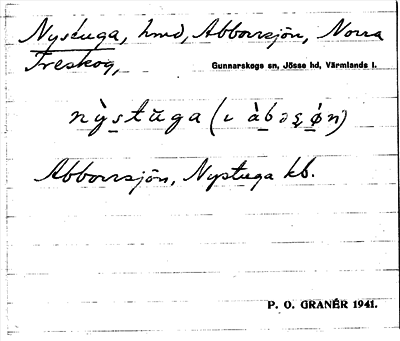 Nystuga, hmd, Abborrsjön, Norra
Treskog, Gunnarskogs sn, Jösse hd, Värmlands l.
nỳstŭga (ı àbəʂǿn)
Abborrsjön, Nystuga kb.
P. O. GRANÉR 1941.